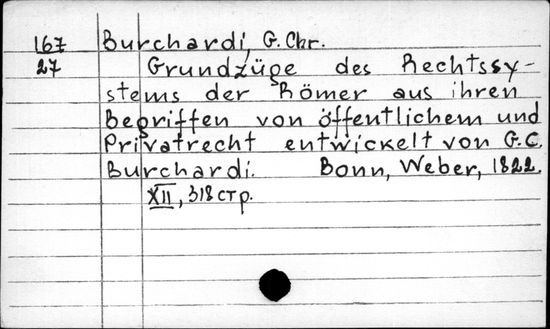 167 Burchardi, G. Chr.
27 Grundzüge des Rechtssy-
stems der Römer aus ihren
Begriffen von öffentlichem und
Privatrecht entwickelt von G.C.
Burchardi. Bonn, Weber, 1822.
XII, 318 стр.